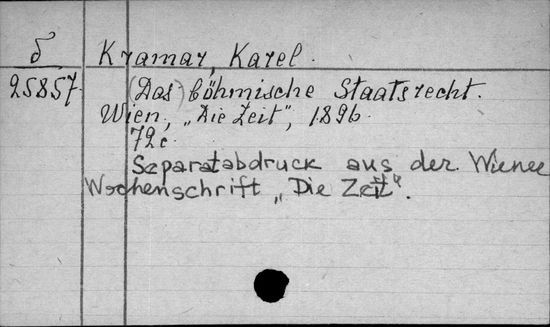 δ Kramar, Karel.
25857 (Das) böhmische Staatsrecht.
Wien, „Die Zeit", 1896.
72 c.
Separatabdruck aus der Wiener
Wochenschrift „Die Zeit".